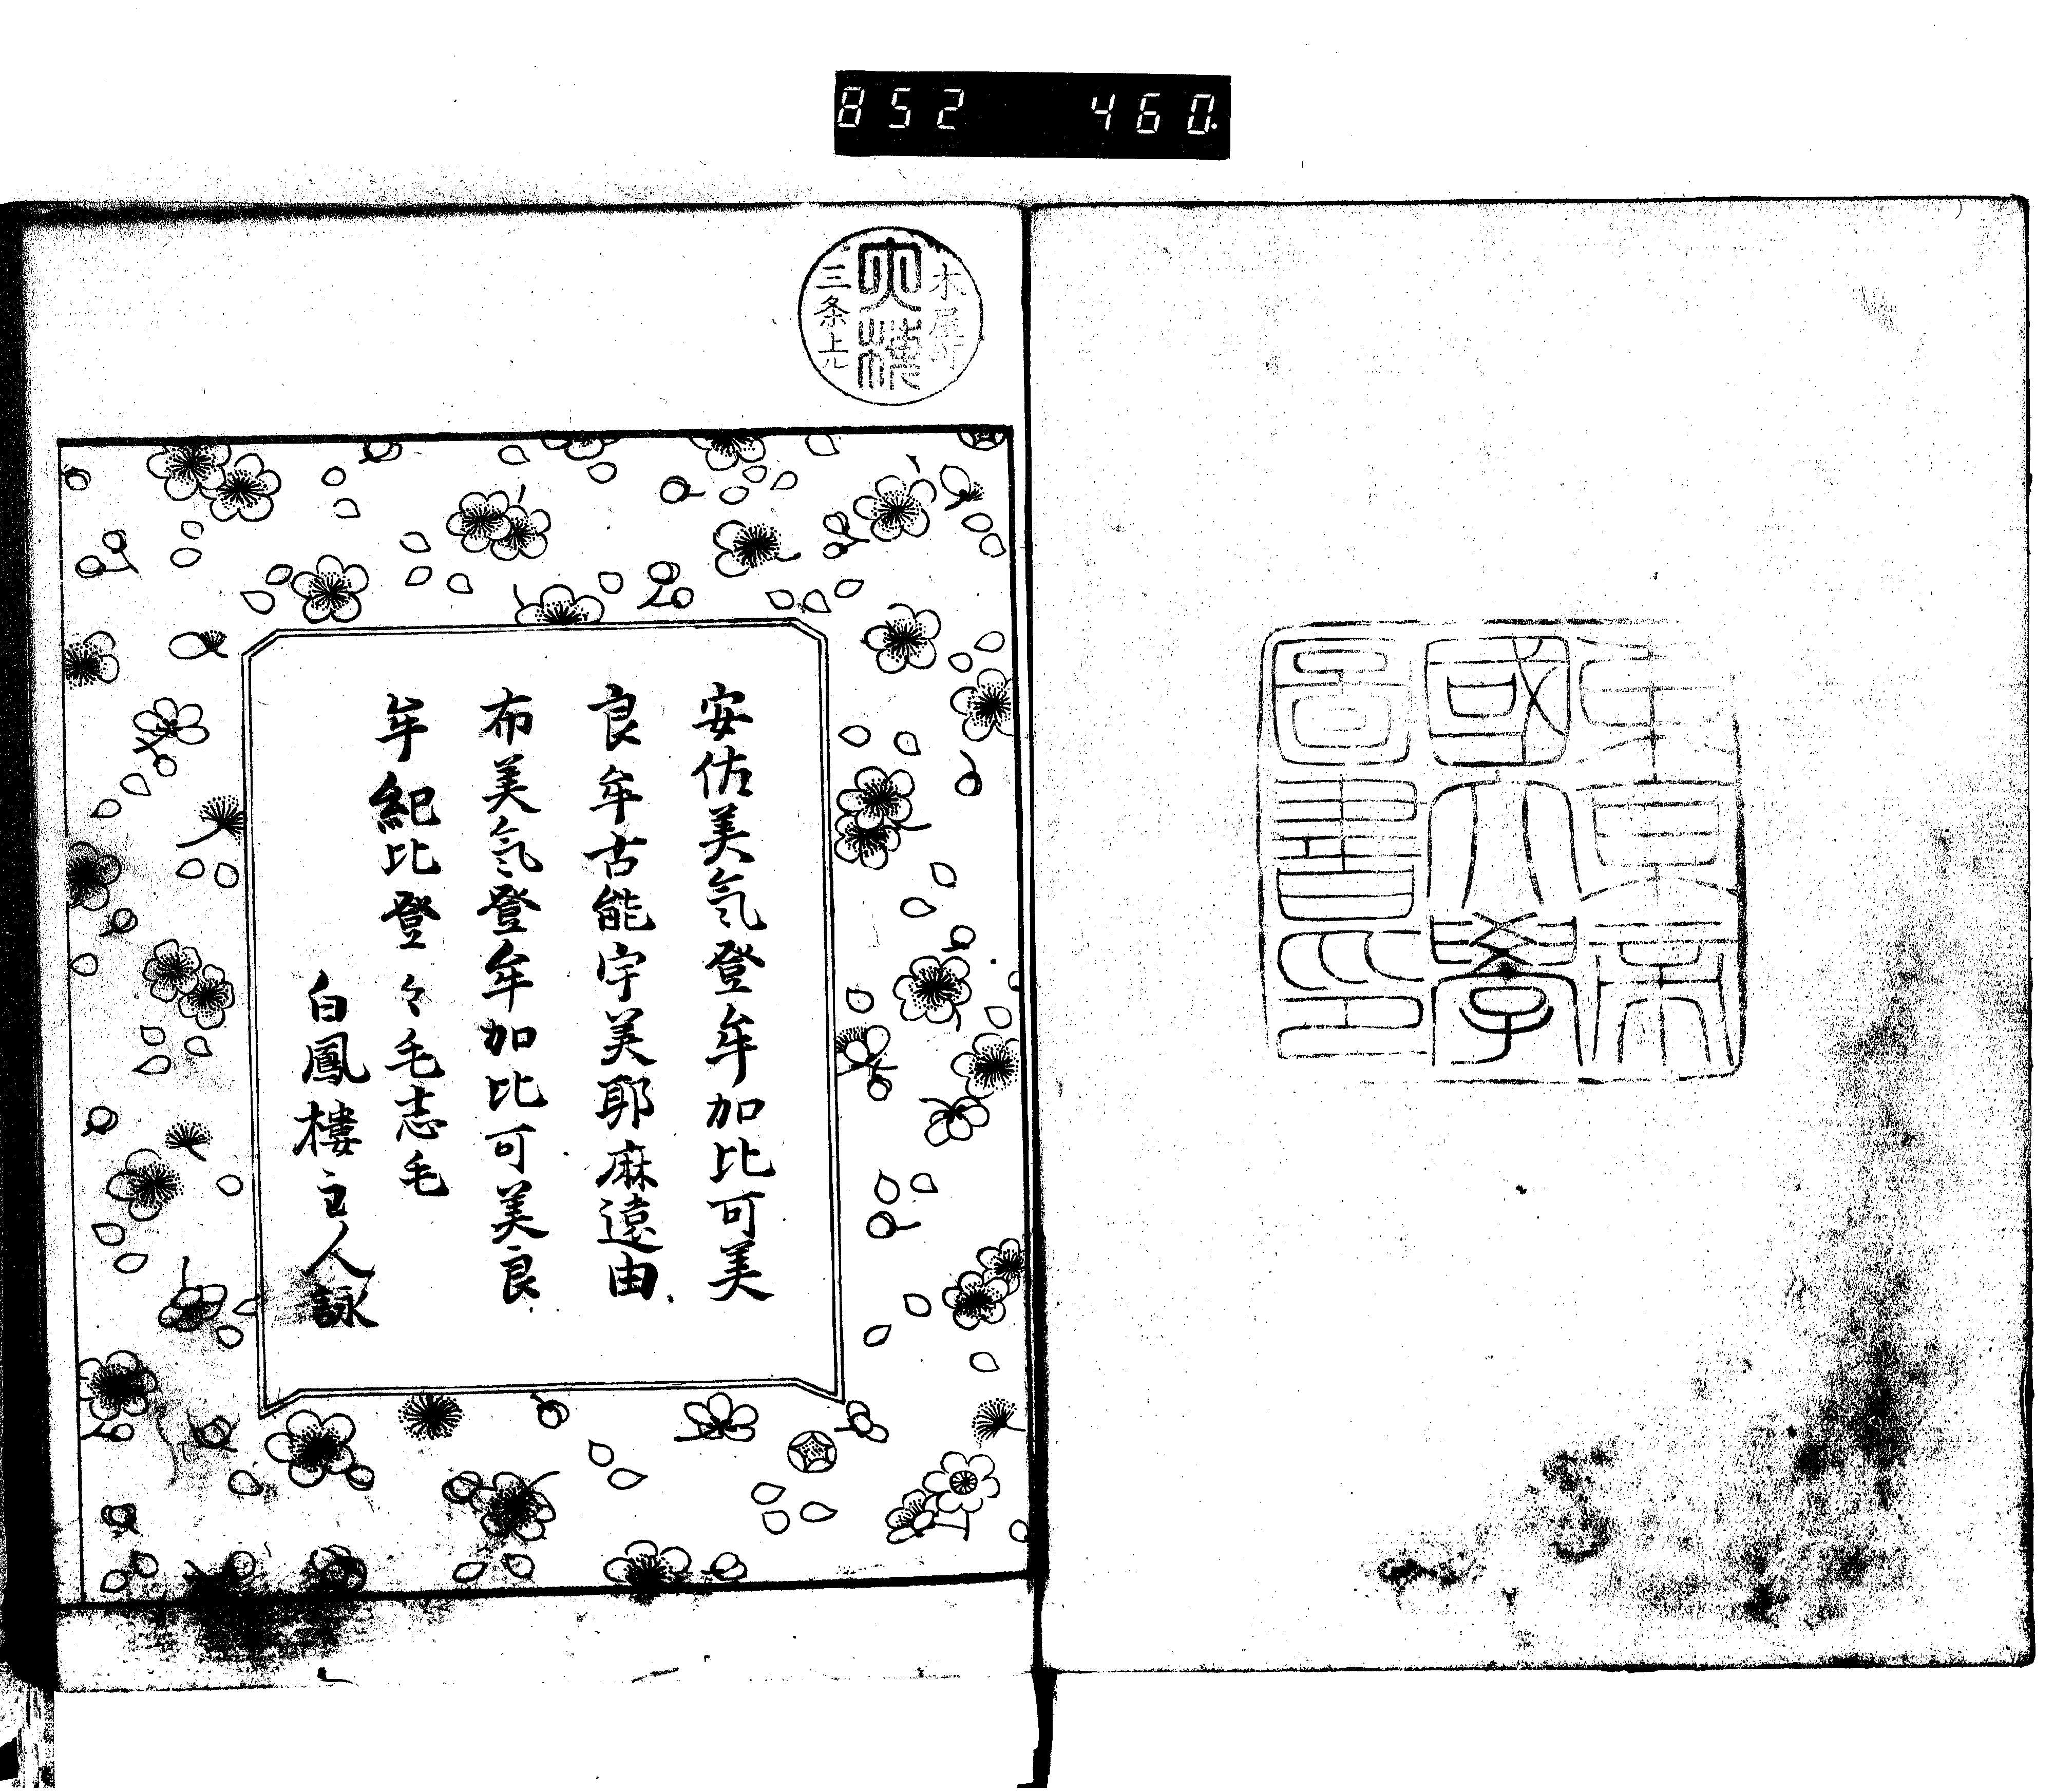 852 460
東京帝
國大學
圖書印
木屋町
三条上
安佐美気登牟加比可美
良牟古能宇美耶麻遠由
布美気登牟加比可美良
牟紀比登々毛志毛
白鳳樓主人詠